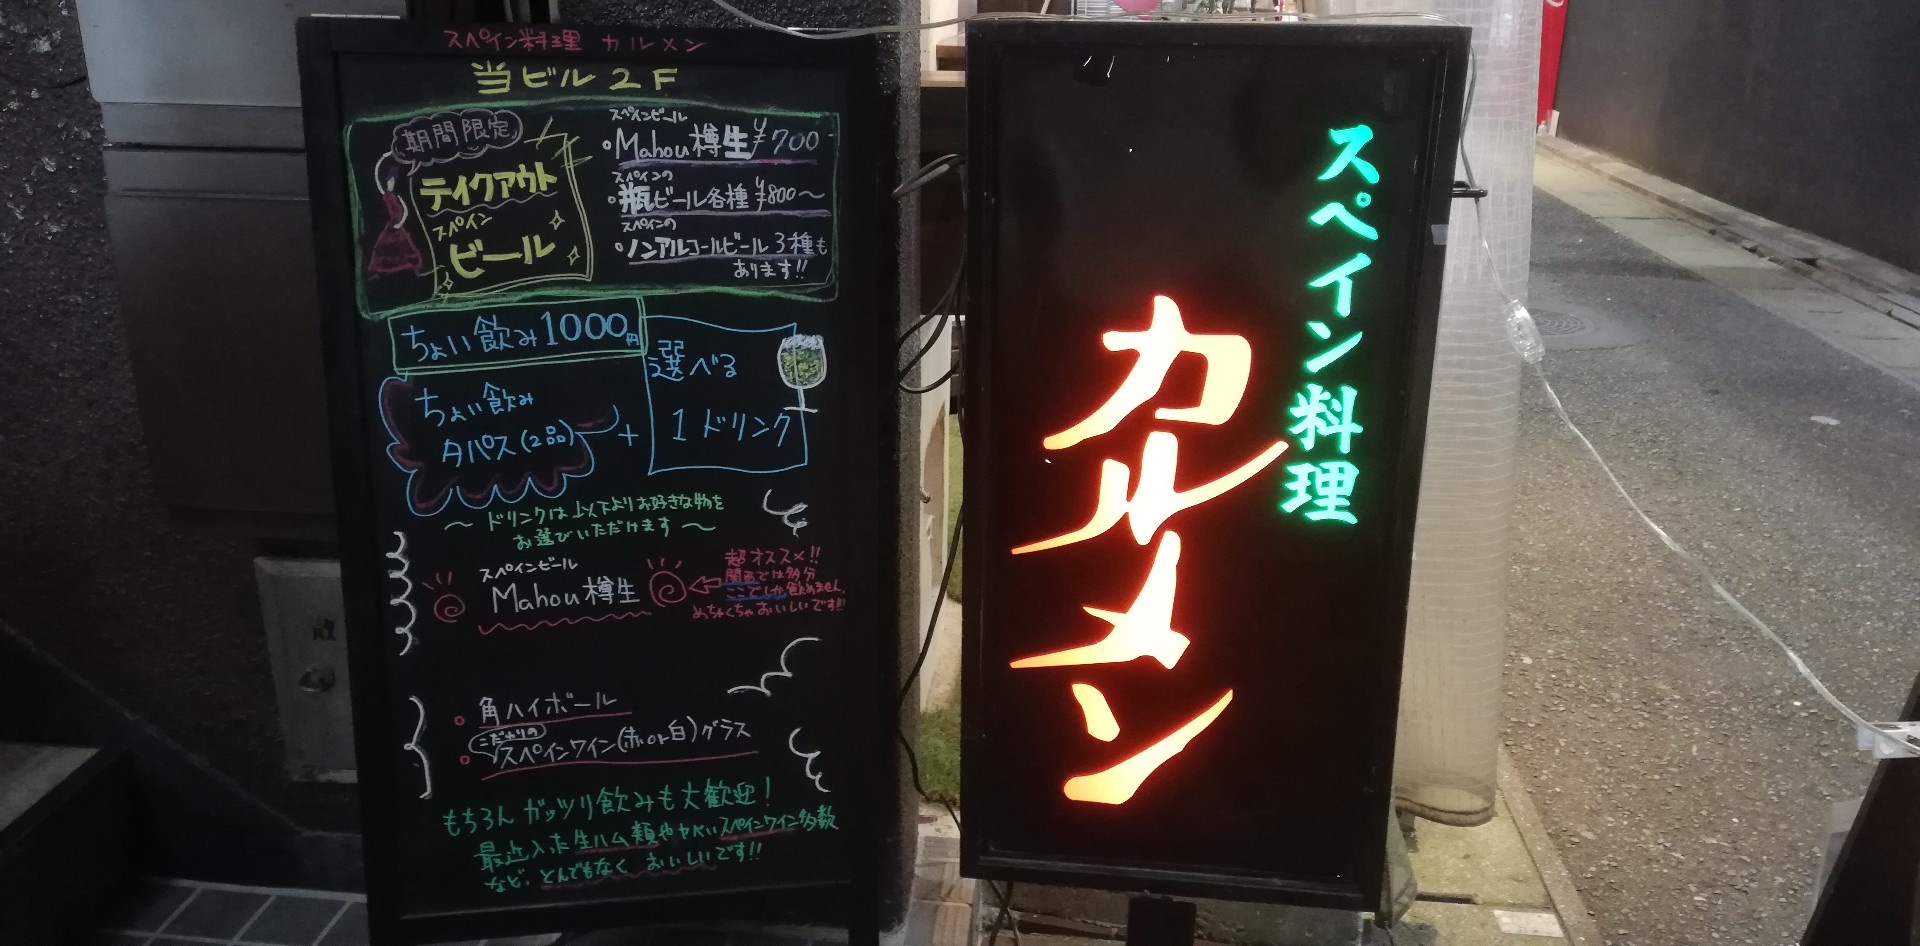 スペイン料理 カルメン
当ビル2F
期間限定
テイクアウト
スペイン
ビール
スペインビール
・Mahou樽生¥700
スペインの
・瓶ビール各種¥800～
スペインの
・ノンアルコールビール3種も
あります!!
ちょい飲み1000円
ちょい飲み
タパス(2品)
+
選べる
1ドリンク
～ドリンクは以下よりお好きな物を
お選びいただけます～
スペインビール
Mahou樽生
超オススメ!!
関西では多分
ここでしか飲めません。
めちゃくちゃおいしいです!!!
角ハイボール
こだわりの
スペインワイン(赤or白)グラス
もちろんガッツリ飲みも大歓迎!
最近入荷生ハム類やヤバいスペインワイン多数
など、とんでもなくおいしいです!!
スペイン料理
カルメン